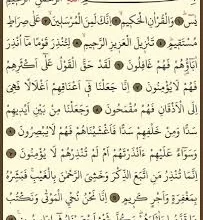 يسٓ ۝ وَٱلْقُرْءَانِ ٱلْحَكِيمِ ۝ إِنَّكَ لَمِنَ ٱلْمُرْسَلِينَ ۝ عَلَىٰ صِرَٰطٍ
مُّسْتَقِيمٍ ۝ تَنزِيلَ ٱلْعَزِيزِ ٱلرَّحِيمِ ۝ لِتُنذِرَ قَوْمًا مَّآ أُنذِرَ
ءَابَآؤُهُمْ فَهُمْ غَٰفِلُونَ ۝ لَقَدْ حَقَّ ٱلْقَوْلُ عَلَىٰٓ أَكْثَرِهِمْ
فَهُمْ لَا يُؤْمِنُونَ ۝ إِنَّا جَعَلْنَا فِىٓ أَعْنَٰقِهِمْ أَغْلَٰلًا فَهِىَ
إِلَى ٱلْأَذْقَانِ فَهُم مُّقْمَحُونَ ۝ وَجَعَلْنَا مِنۢ بَيْنِ أَيْدِيهِمْ
سَدًّا وَمِنْ خَلْفِهِمْ سَدًّا فَأَغْشَيْنَٰهُمْ فَهُمْ لَا يُبْصِرُونَ ۝
وَسَوَآءٌ عَلَيْهِمْ ءَأَنذَرْتَهُمْ أَمْ لَمْ تُنذِرْهُمْ لَا يُؤْمِنُونَ ۝
إِنَّمَا تُنذِرُ مَنِ ٱتَّبَعَ ٱلذِّكْرَ وَخَشِىَ ٱلرَّحْمَٰنَ بِٱلْغَيْبِ فَبَشِّرْهُ
بِمَغْفِرَةٍ وَأَجْرٍ كَرِيمٍ ۝ إِنَّا نَحْنُ نُحْىِ ٱلْمَوْتَىٰ وَنَكْتُبُ